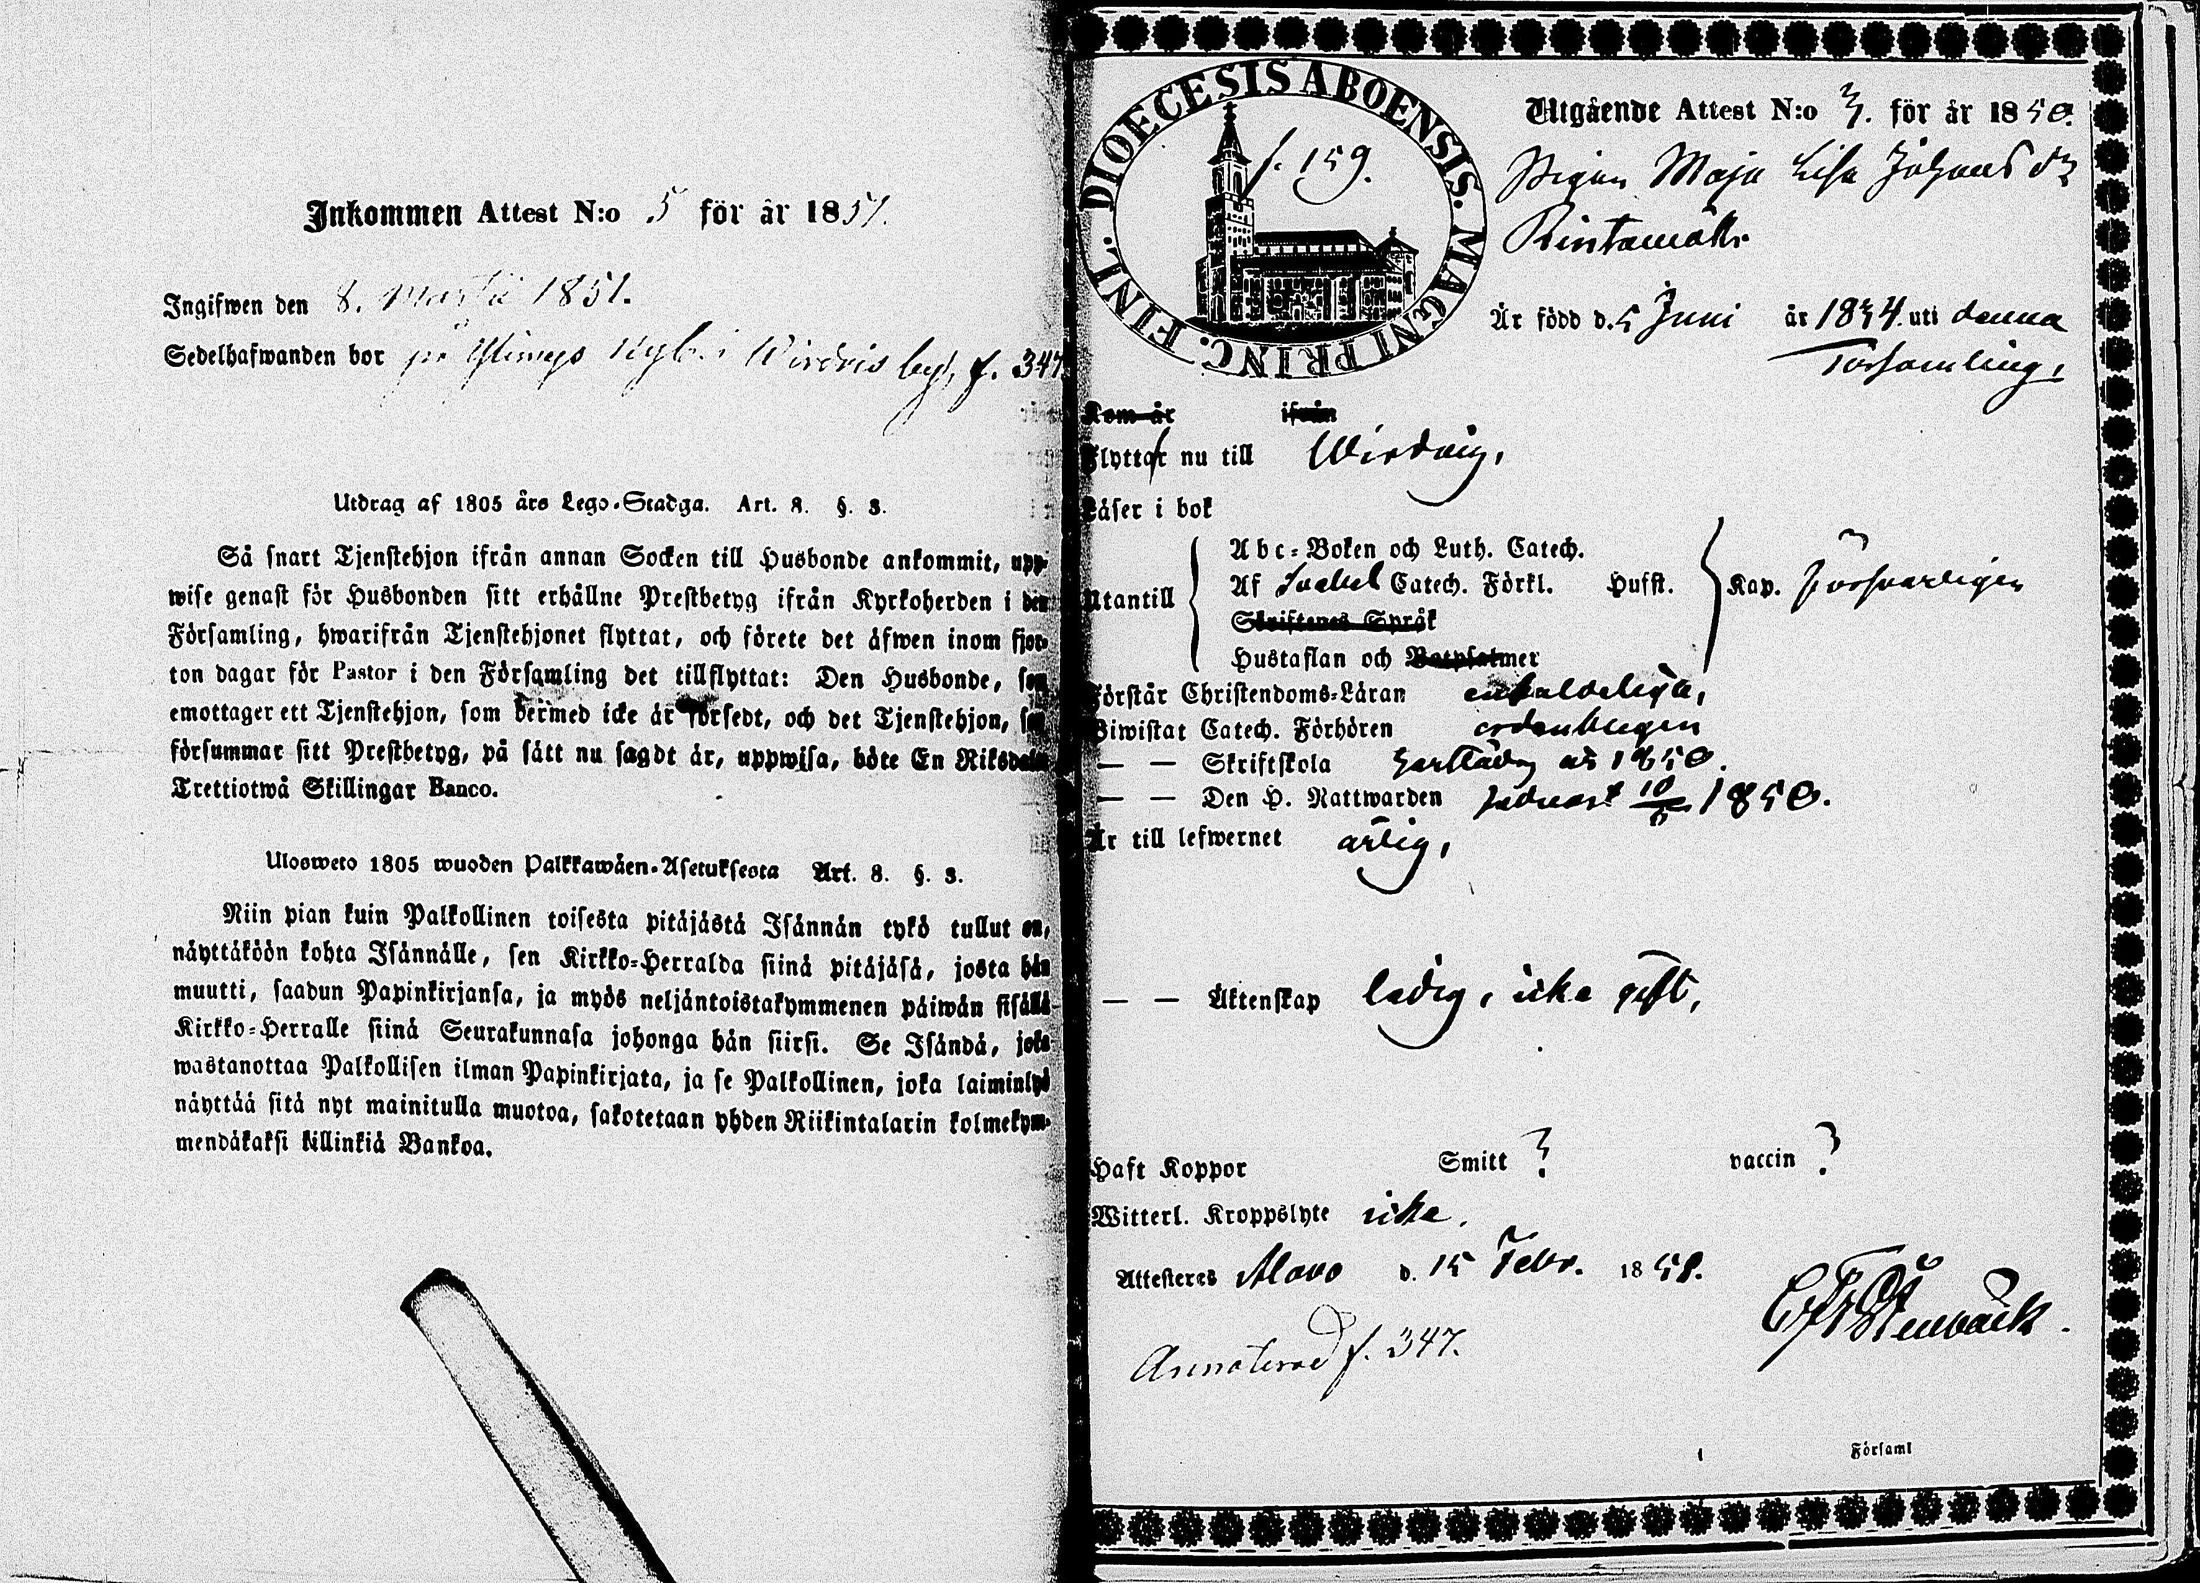 Inkommen Attest N:o 5 för år 1851.
Ingifwen den 8. Martii 1851.
Sedelhafwanden bor på i Wirdois by, f. 347
Utdrag af 1805 års Lego-Stadga. Art. 8. §. 3.
Så snart Tjenstehjon ifrån annan Socken till Husbonde ankommit, upp-
wise genast för Husbonden sitt erhållne Prestbetyg ifrån Kyrkoherden i den
Församling, hwarifrån Tjenstehjonet flyttat, och förete det äfwen inom fjor-
ton dagar för Pastor i den Församling det tillflyttat: Den Husbonde, som
emottager ett Tjenstehjon, som dermed icke är försedt, och det Tjenstehjon, som
försummar sitt Prestbetyg, på sätt nu sagdt är, uppwisa, böte En Riksdaler
Trettiotwå Skillingar Banco.
Ulosweto 1805 wuoden Palkkawäen-Asetuksesta Art. 8. §. 3.
Niin pian kuin Palkollinen toisesta pitäjästä Isännän tykö tullut on,
näyttäköön kohta Isännälle, sen Kirkko-Herralda siinä pitäjäsä, josta hän
muutti, saadun Papinkirjansa, ja myös neljäntoistakymmenen päiwän sisällä
Kirkko-Herralle siinä Seurakunnasa johonga hän siirsi. Se Isändä, joka
wastanottaa Palkollisen ilman Papinkirjata, ja se Palkollinen, joka laiminlyö
näyttää sitä nyt mainitulla muotoa, sakotetaan yhden Riikintalarin kolmekym-
mendäkaksi killinkiä Bankoa.
DIOECESIS ABOENSIS. MAGNI PRINC. FINL.
f. 159.
Utgående Attest N:o 3. för år 1850.
Pigan Maja Lisa Johansdr
Rintamäki
Är född d. 5 Juni år 1834. uti denna
Församling,
Kom år ifrån
Flyttar nu till Wirdois,
Läser i bok
Utantill
Abc-Boken och Luth. Catech.
Af Svebel Catech. Förkl. Husst. Kap. försvarligen
Skriftenes Språk
Hustaflan och Botpsalmer
Förstår Christendoms-Läran enfaldeliga,
Biwistat Catech. Förhören ordenteligen
— — Skriftskola år 1850.
— — Den H. Nattwarden sednast 1850.
Är till lefwernet ärlig,
— — Äktenskap ledig, icke gift,
Haft Koppor Smitt ? vaccin ?
Witterl. Kroppslyte icke.
Attesteres Alavo d. 15 Febr. 1851.
Stenbäck.
Annoterad f. 347.
Församl